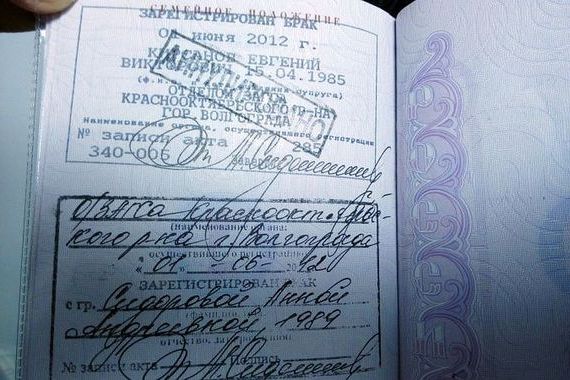 СЕМЕЙНОЕ ПОЛОЖЕНИЕ
ЗАРЕГИСТРИРОВАН БРАК
01 июня 2012 г.
ЕВГЕНИЙ
ВИКТОРОВИЧ 15.04.1985
ОТДЕЛОМ ЗАГСА
КРАСНООКТЯБРЬСКОГО Р-НА
ГОР. ВОЛГОГРАДА
Наименование органа, осуществившего регистрацию
№ записи акта 285
340-006 Заверил
О/ЗАГСа Краснооктябрьс-
кого р-на г. Волгограда
(наименование органа,
осуществившего регистрацию)
«01» -06- 2012
ЗАРЕГИСТРИРОВАН БРАК
с гр. Сидоровой Анной
Андреевной, 1989
отчество, дата рождения)
№ записи акта Подпись